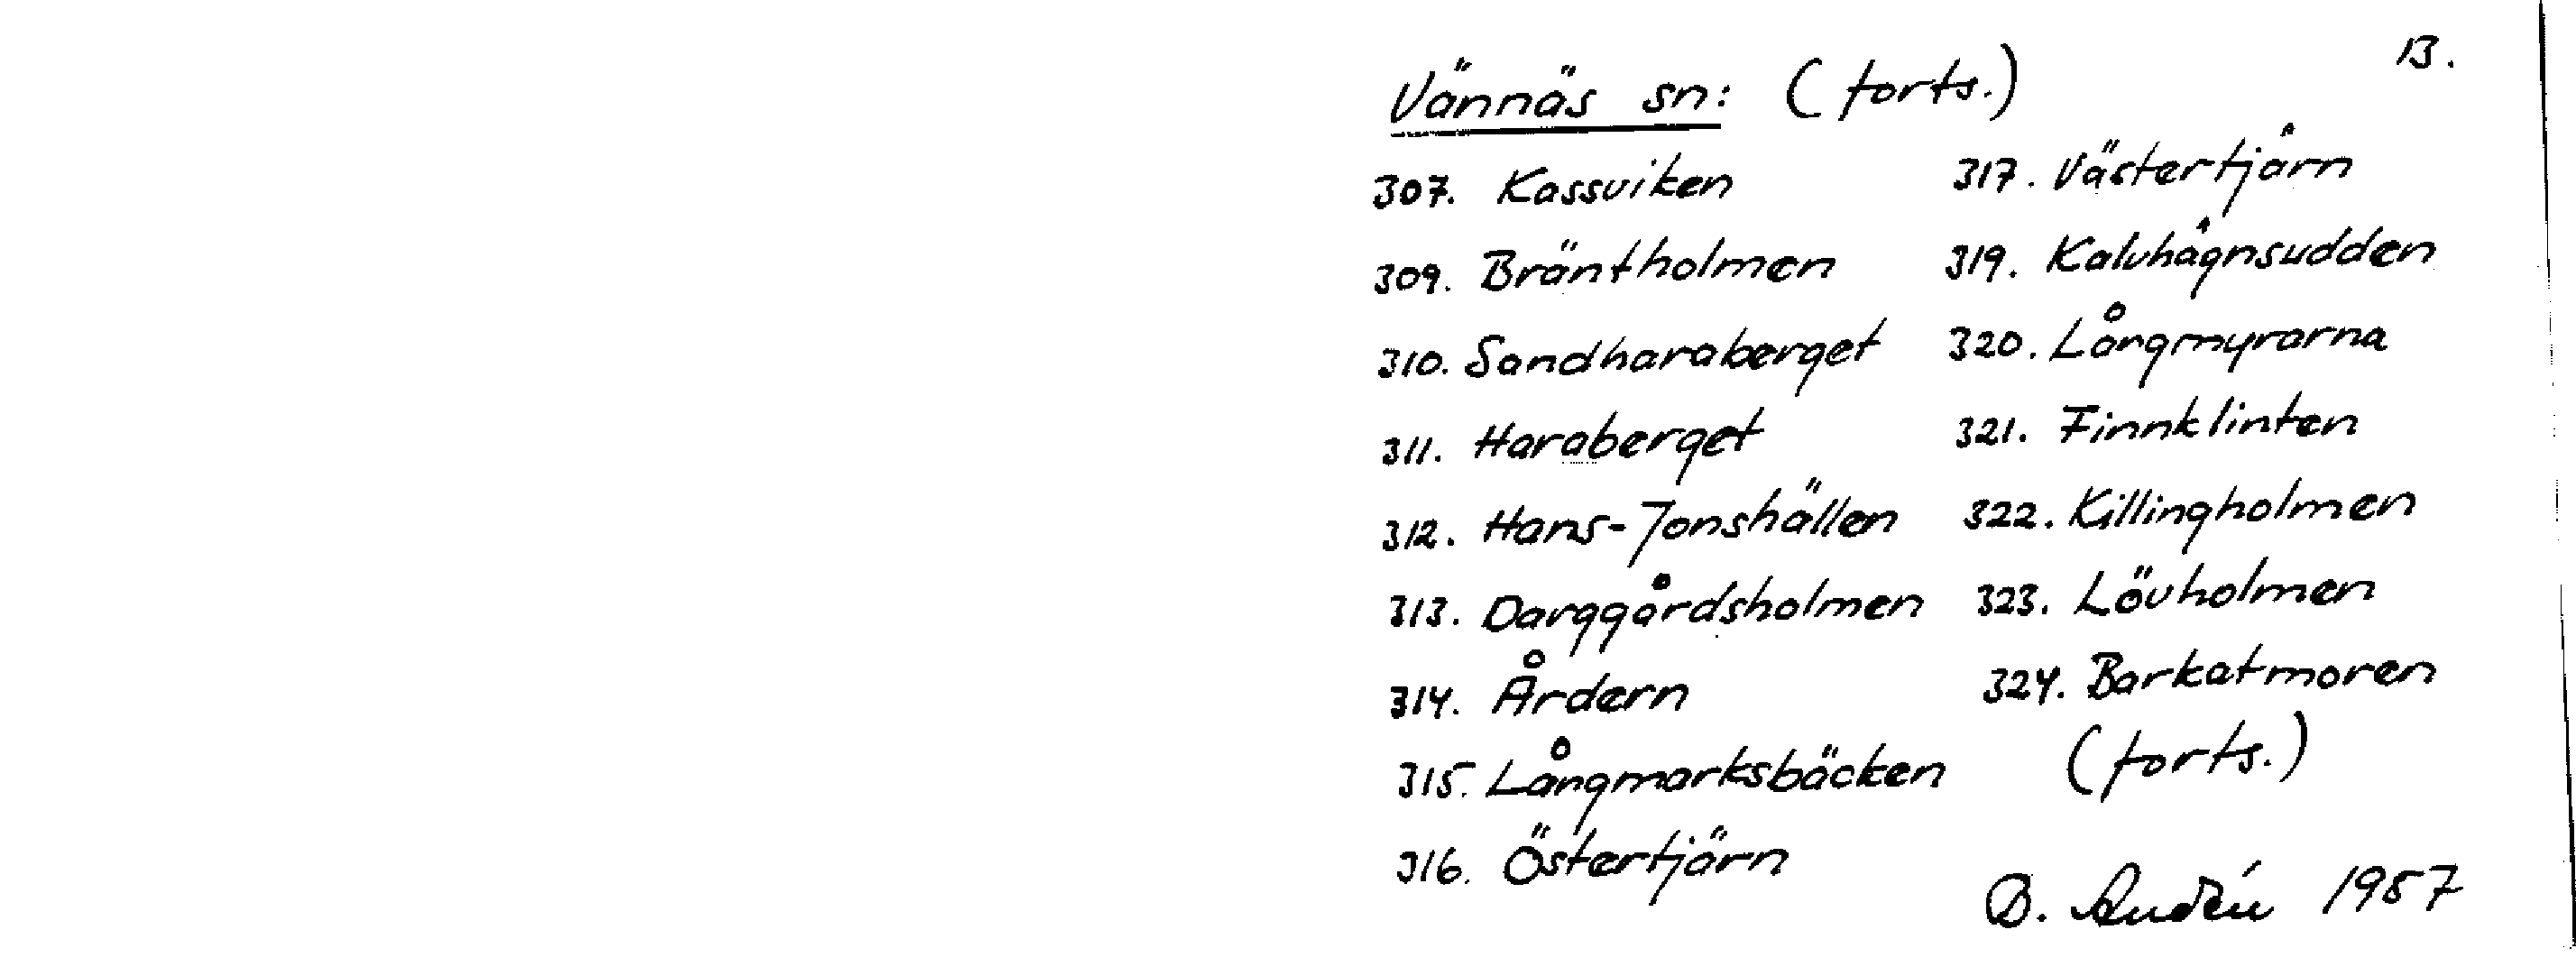 13.
Vännäs sn: (forts.)
307. Kassviken
309. Bräntholmen
310. Sandharaberget
311. Haraberget
312. Hans-Jonshällen
313. Darggårdsholmen
314. Årdern
315. Långmarksbäcken
316. Östertjärn
317. Västertjärn
319. Kalvhägnsudden
320. Långmyrarna
321. Finnklinten
322. Killingholmen
323. Lövholmen
324. Barkatmoren
(forts.)
B. Audén 1987